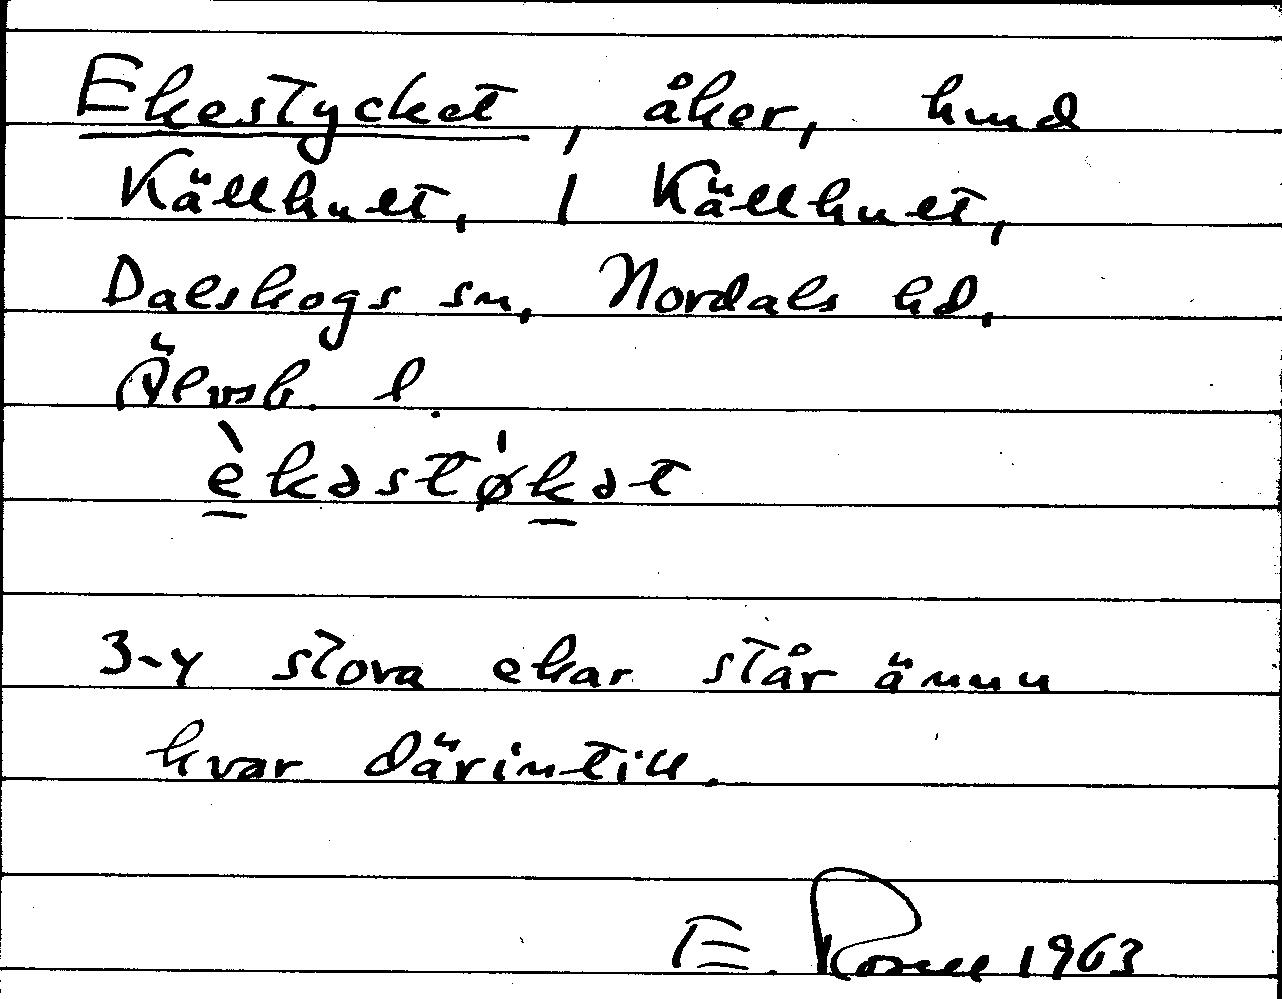 Ekestycket, åker, hmd
Källhult, 1 Källhult,
Dalskogs sn, Nordals hd,
Älvsb. l.
è̲kəstø̍k̲ət
3-4 stora ekar står ännu
kvar därintill.
E. Rosell 1963